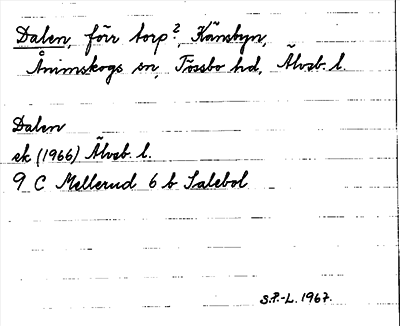 Dalen, förr torp?, Känsbyn,
Ånimskogs sn, Tössbo hd, Älvsb. l.
Dalen
ek (1966) Älvsb. l.
9 C Mellerud 6 b Salebol
S.P.-L. 1967.